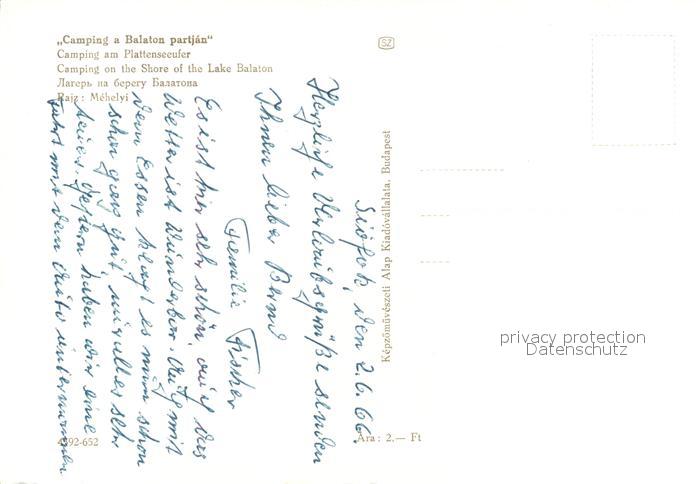 „Camping a Balaton partján“
Camping am Plattenseeufer
Camping on the Shore of the Lake Balaton
Лагерь на берегу Балатона
Rajz: Méhelyi
SZ
Siófok, den 2.6.66.
Herzliche Urlaubsgrüße senden
Ihnen lieber Bernd
Familie Fischer
Es ist hier sehr schön, auch das
Wetter ist wunderbar. Auch mit
dem Essen klapt es nun schon
schon ganz gut, nur alles sehr
teuer. Gestern haben wir eine
Fahrt mit dem Auto unternommen
Képzőművészeti Alap Kiadóvállalata, Budapest
privacy protection
Datenschutz
4392-652
Ára: 2.— Ft